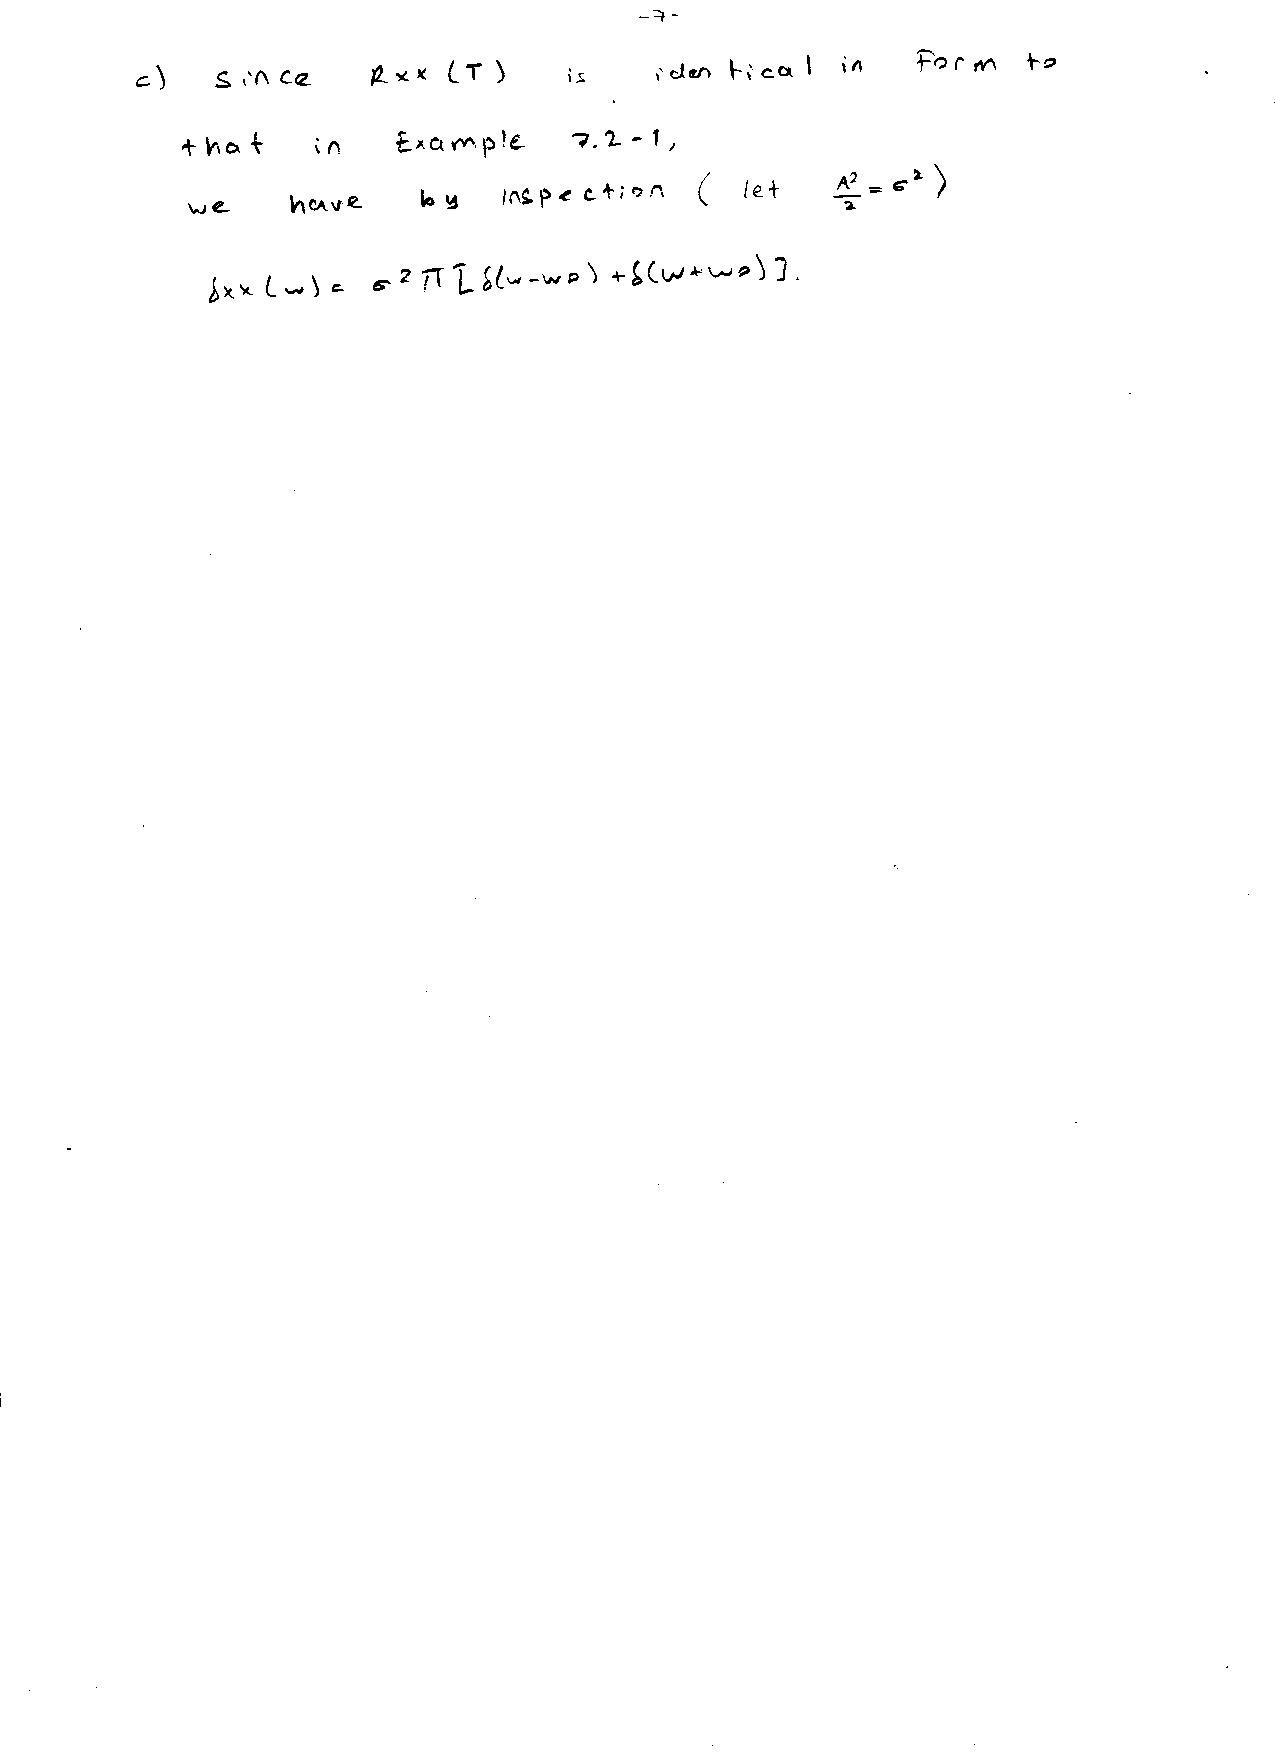 -7-
c) since Rxx (T) is identical in Form to
that in Example 7.2-1,
we have by inspection ( let A²/2 = σ² )
δxx (ω) = σ² π [ δ(ω-ω0) + δ(ω+ω0) ].